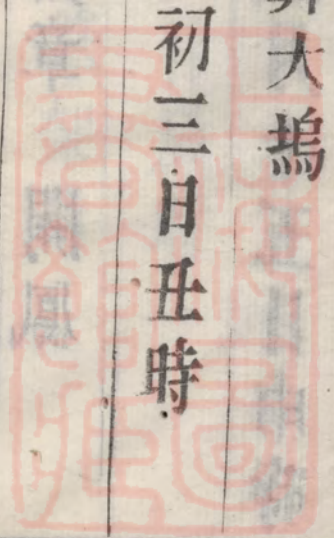 大塢
初三日丑時